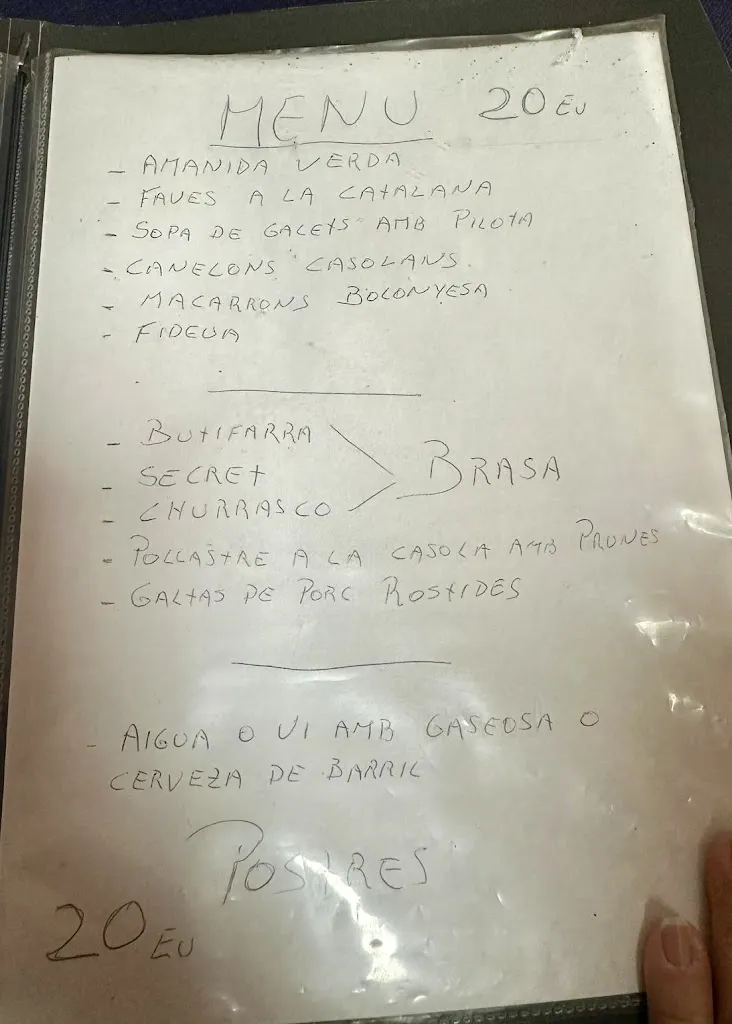 MENU 20 EU
- AMANIDA VERDA
- FAVES A LA CATALANA
- SOPA DE GALETS AMB PILOTA
- CANELONS CASOLANS
- MACARRONS BOLONYESA
- FIDEUA
- BUTIFARRA
- SECRET
- CHURRASCO
BRASA
- POLLASTRE A LA CASOLA AMB PRUNES
- GALTAS DE PORC ROSTIDES
- AIGUA O VI AMB GASEOSA O
CERVEZA DE BARRIL
POSTRES
20 EU